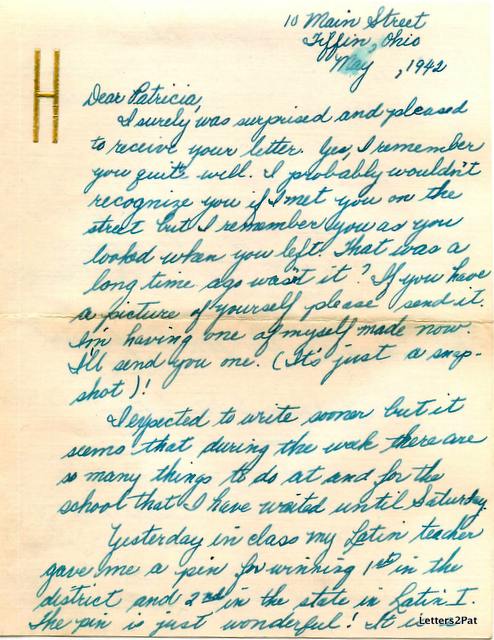 H
10 Main Street
Tiffin, Ohio
May , 1942
Dear Patricia,
I surely was surprised and pleased
to receive your letter. Yes, I remember
you quite well. I probably wouldn't
recognize you if I met you on the
street but I remember you as you
looked when you left. That was a
long time ago wasn't it? If you have
a picture of yourself please send it.
I'm having one of myself made now.
I'll send you one. (It's just a snap-
shot)!
I expected to write sooner but it
seems that during the week there are
so many things to do at and for the
school that I have waited until Saturday.
Yesterday in class my Latin teacher
gave me a pin for winning 1st in the
district and 2nd in the state in Latin I.
The pin is just wonderful! It is
Letters2Pat